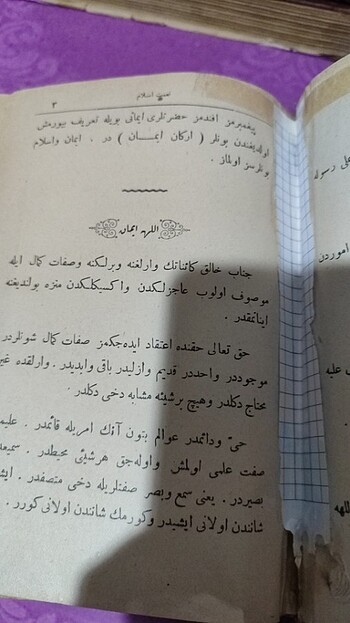 نعمت اسلام
٣
پیغمبرمز افندمز حضرتلری ایمانی بویله تعریف بیورمش
اولدیغندن بونلر ( ارکان ایمـــان ) در . ایمان واسلام
ونلرسز اولماز .
اللهه ایمان
جناب خالق کائناتك وارلغنه وبرلکنه وصفات کمال ایله
موصوف اولوب عاجزلکدن واکسیکلکدن منزه بولندیغنه
اینانمقدر .
حق تعالی حقنده اعتقاد ایده‌جکمز صفات کمال شونلردر
موجوددر واحددر قدیم وازلیدر باقی وابدیدر . وارلقده غیر
محتاج دکلدر وهیچ برشیئه مشابه دخی دکلدر
حیّ ودائمدر عوالم بتون آنك امریله قائمدر . علیم
صفت علمی اولمش واوله‌جق هرشیئی محیطدر . سمیعد
بصیردر . یعنی سمع وبصر صفتلریله دخی متصفدر . ایشید
شانندن اولانی ایشیدر وکورمك شانندن اولانی کورر .
علی رسوله
اموردن
علیه
اللهه